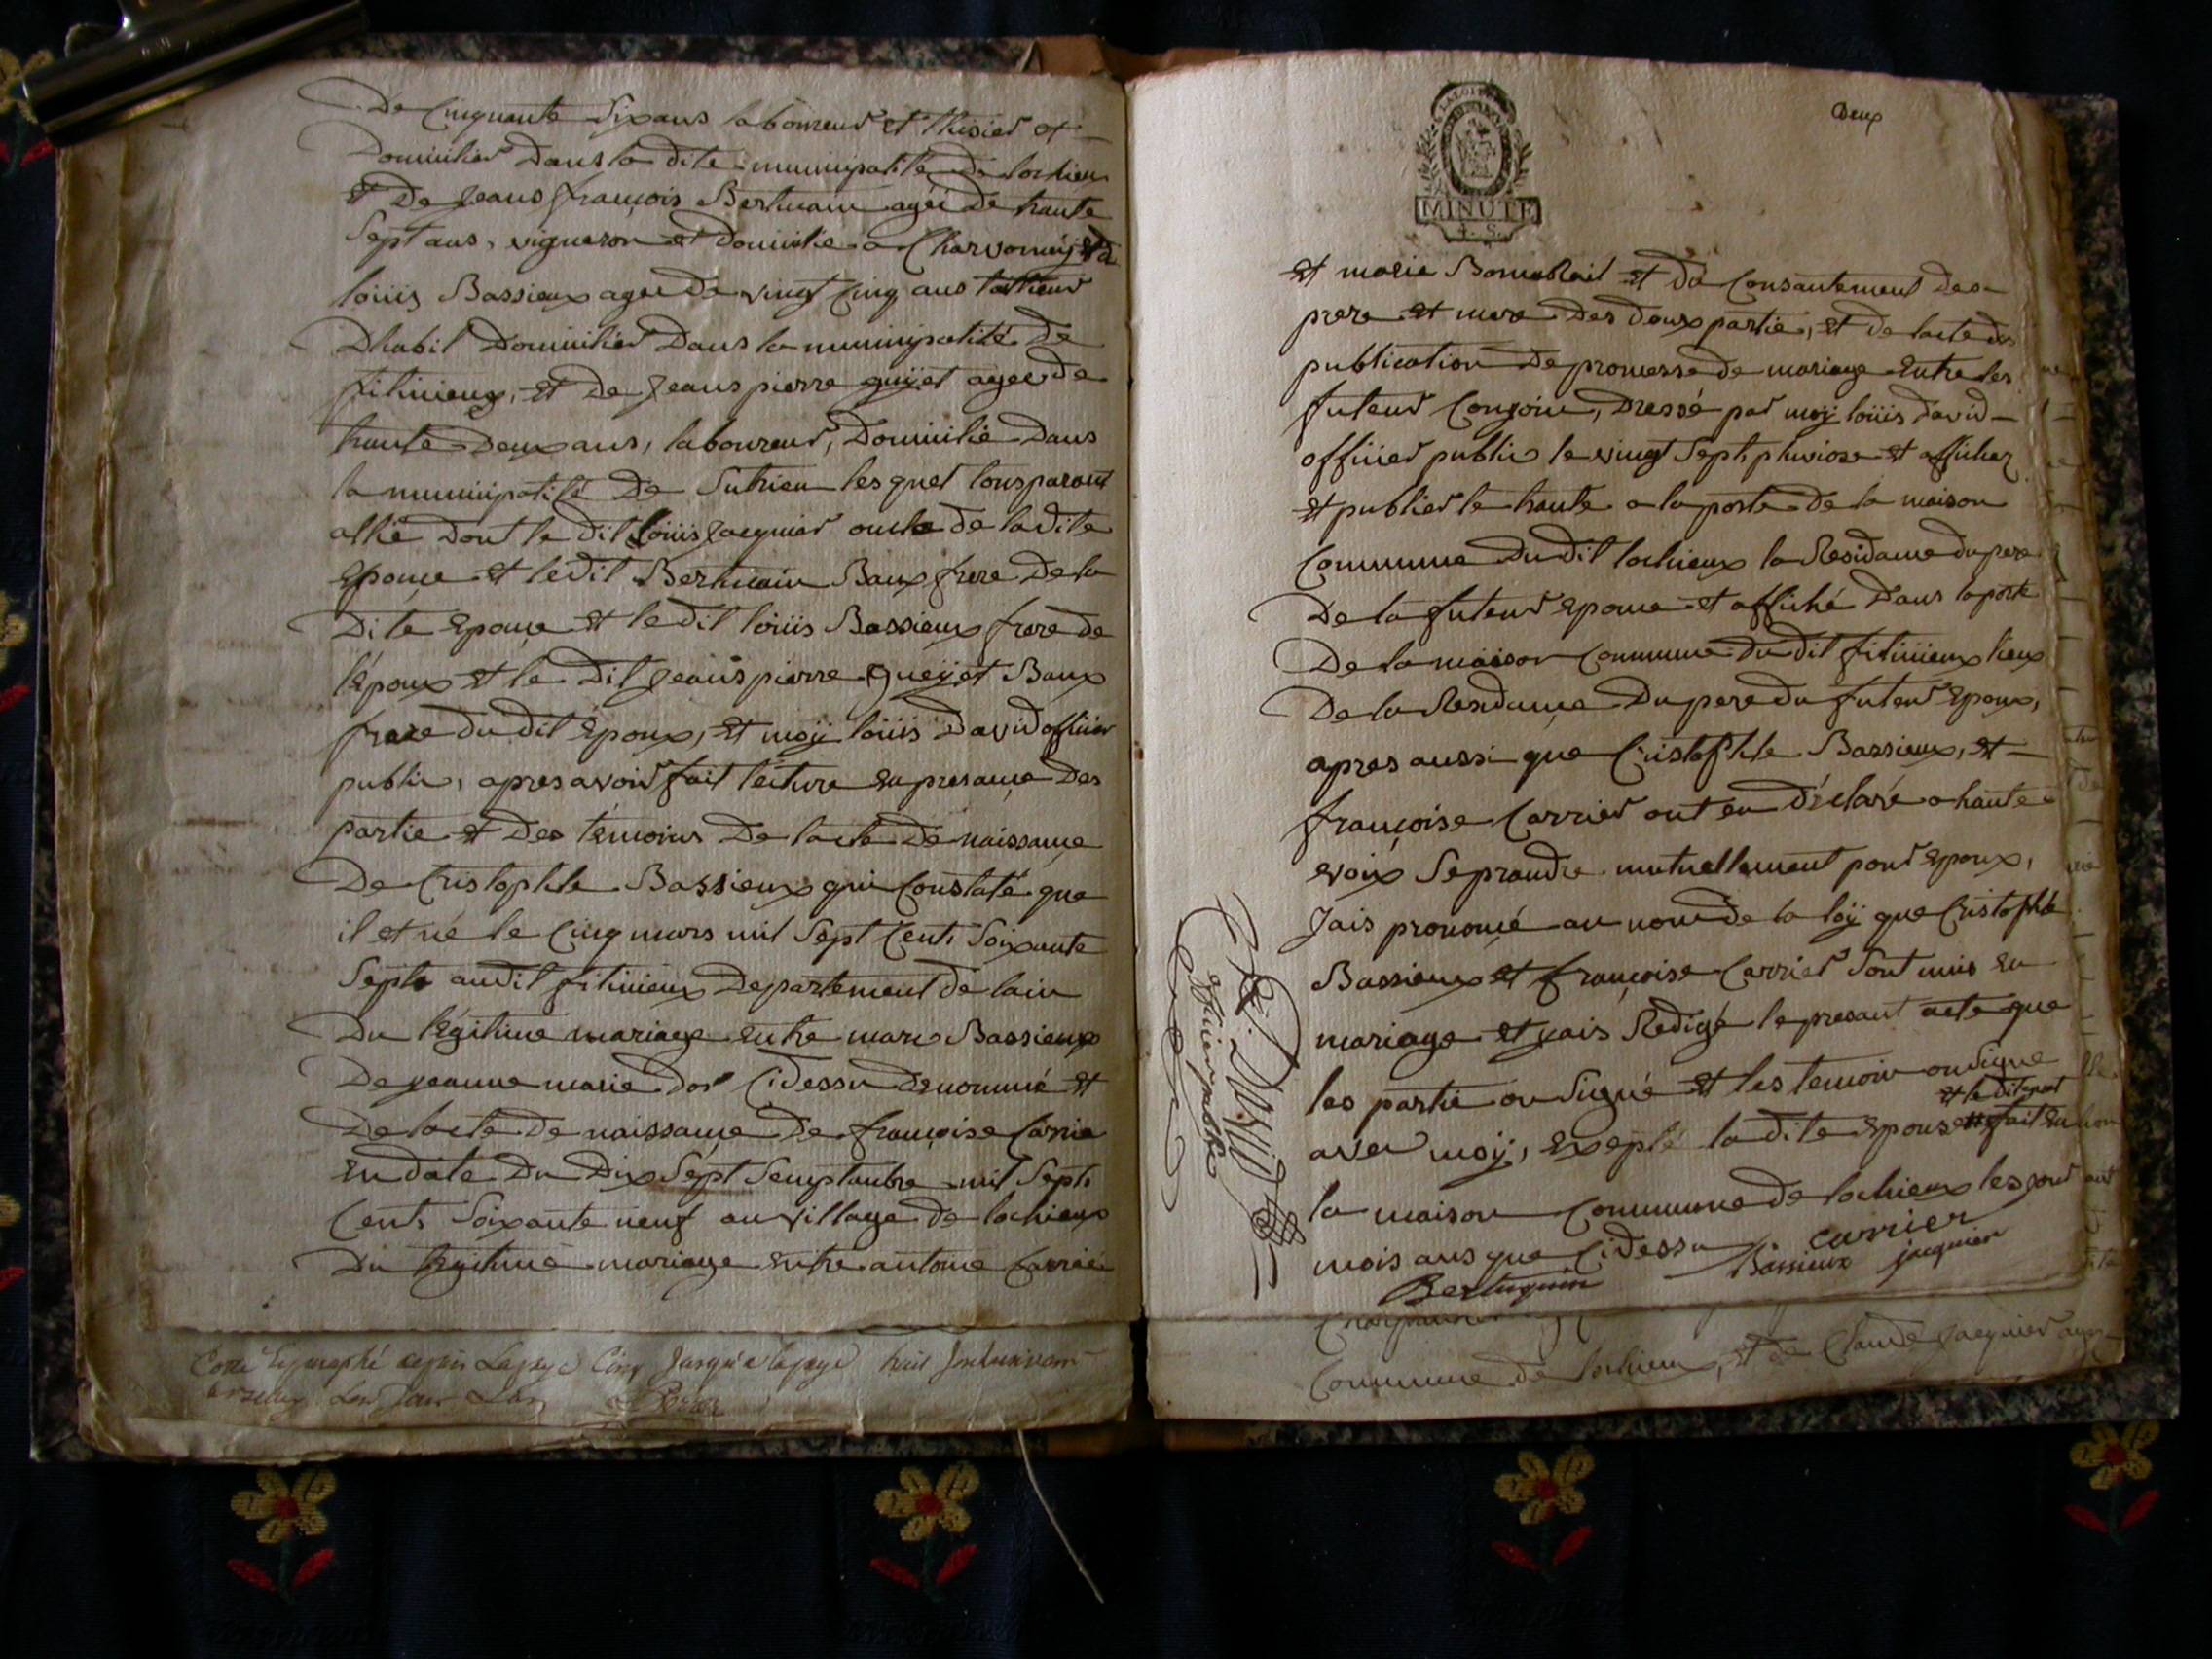 De Cinquante Six ans laboureur et thisier et
Domicilier Dans la dite municipalité de lochieu
et De Jeans françois Berthuain agée De trante
Sept ans, vigneron et Domicilie a Charvornay et de
loüis Bassieux agée De vingt Cinq ans tallieur
Dhabil Domicilier Dans la municipalité De
fitinieux, et De Jeans pierre guyet agée de
trante Deux ans, laboureur, Domicilié Dans
la municipalité De Sutrieu lesquel tous parant
allié Dont le Dit loüis Jacquier oncle de la dite
Epouce et le dit Berthuain Baux frere De la
Dite Epouce et le dit loüis Bassieux frere de
l'époux et le Dit Jeans pierre gueyet Baux
frere du dit Epoux, et moÿ loüis David officier
public, apres avoir fait lecture en presance Des
partie et Des témoins De lacte de naissance
De Cristophle Bassieux qui Constate que
il et né le Cinq mars mil Sept Cents Soixante
Septs audit fitinieux Departement de lain
Du légitime mariage entre marc Bassieux
De jeanne marie dor Cidessu denommé et
De lacte de naissance De françoise Carrié
en date Du Dix Sept Semptanbre mil Septs
Cents Soixante neuf au village de lochieux
Du légitime mariage entre antoine Carrié
Cotté Et paraphé depuis La page Cinq Jusqu'a la page huit Inclusivement
LA LOI
MINUTE
4. S.
Deux
et marie Bonnablail et du Consantement des
prere et mere Des deux partie, et de lacte de
publication de promesse de mariage entre les
futeur Conjoin, Dressé par moÿ loüis David
officier public le vingt Septs pluviose et afficher
et publier le trante a la porte de la maison
Commune Du dit lochieux la Residance du pere
De la futeur epouce et affiché Dans la porte
De la maison Commune du dit fitinieux lieux
De la Residance Du pere du futeur Epoux,
apres aussi que Cristophle Bassieux, et
françoise Carrier ont eu déclaré a haute
voix Se prandre mutuellement pour Epoux,
Jais prononcé au nom de la loÿ que Cristophle
Bassieux et françoise Carrier Sont unis en
mariage et jais Redigé le presant acte que
les partie on Signé et les temoin on Signe
et le dit guet
avec moÿ, Exepté la dite Epouse fait en
la maison Commune de lochieux les jour
mois ans que Cidessu carrier
Bertuquin Bassieux jacquier
L. DAVID
officier public
Commune de lochieux, et de Claude Jacquier